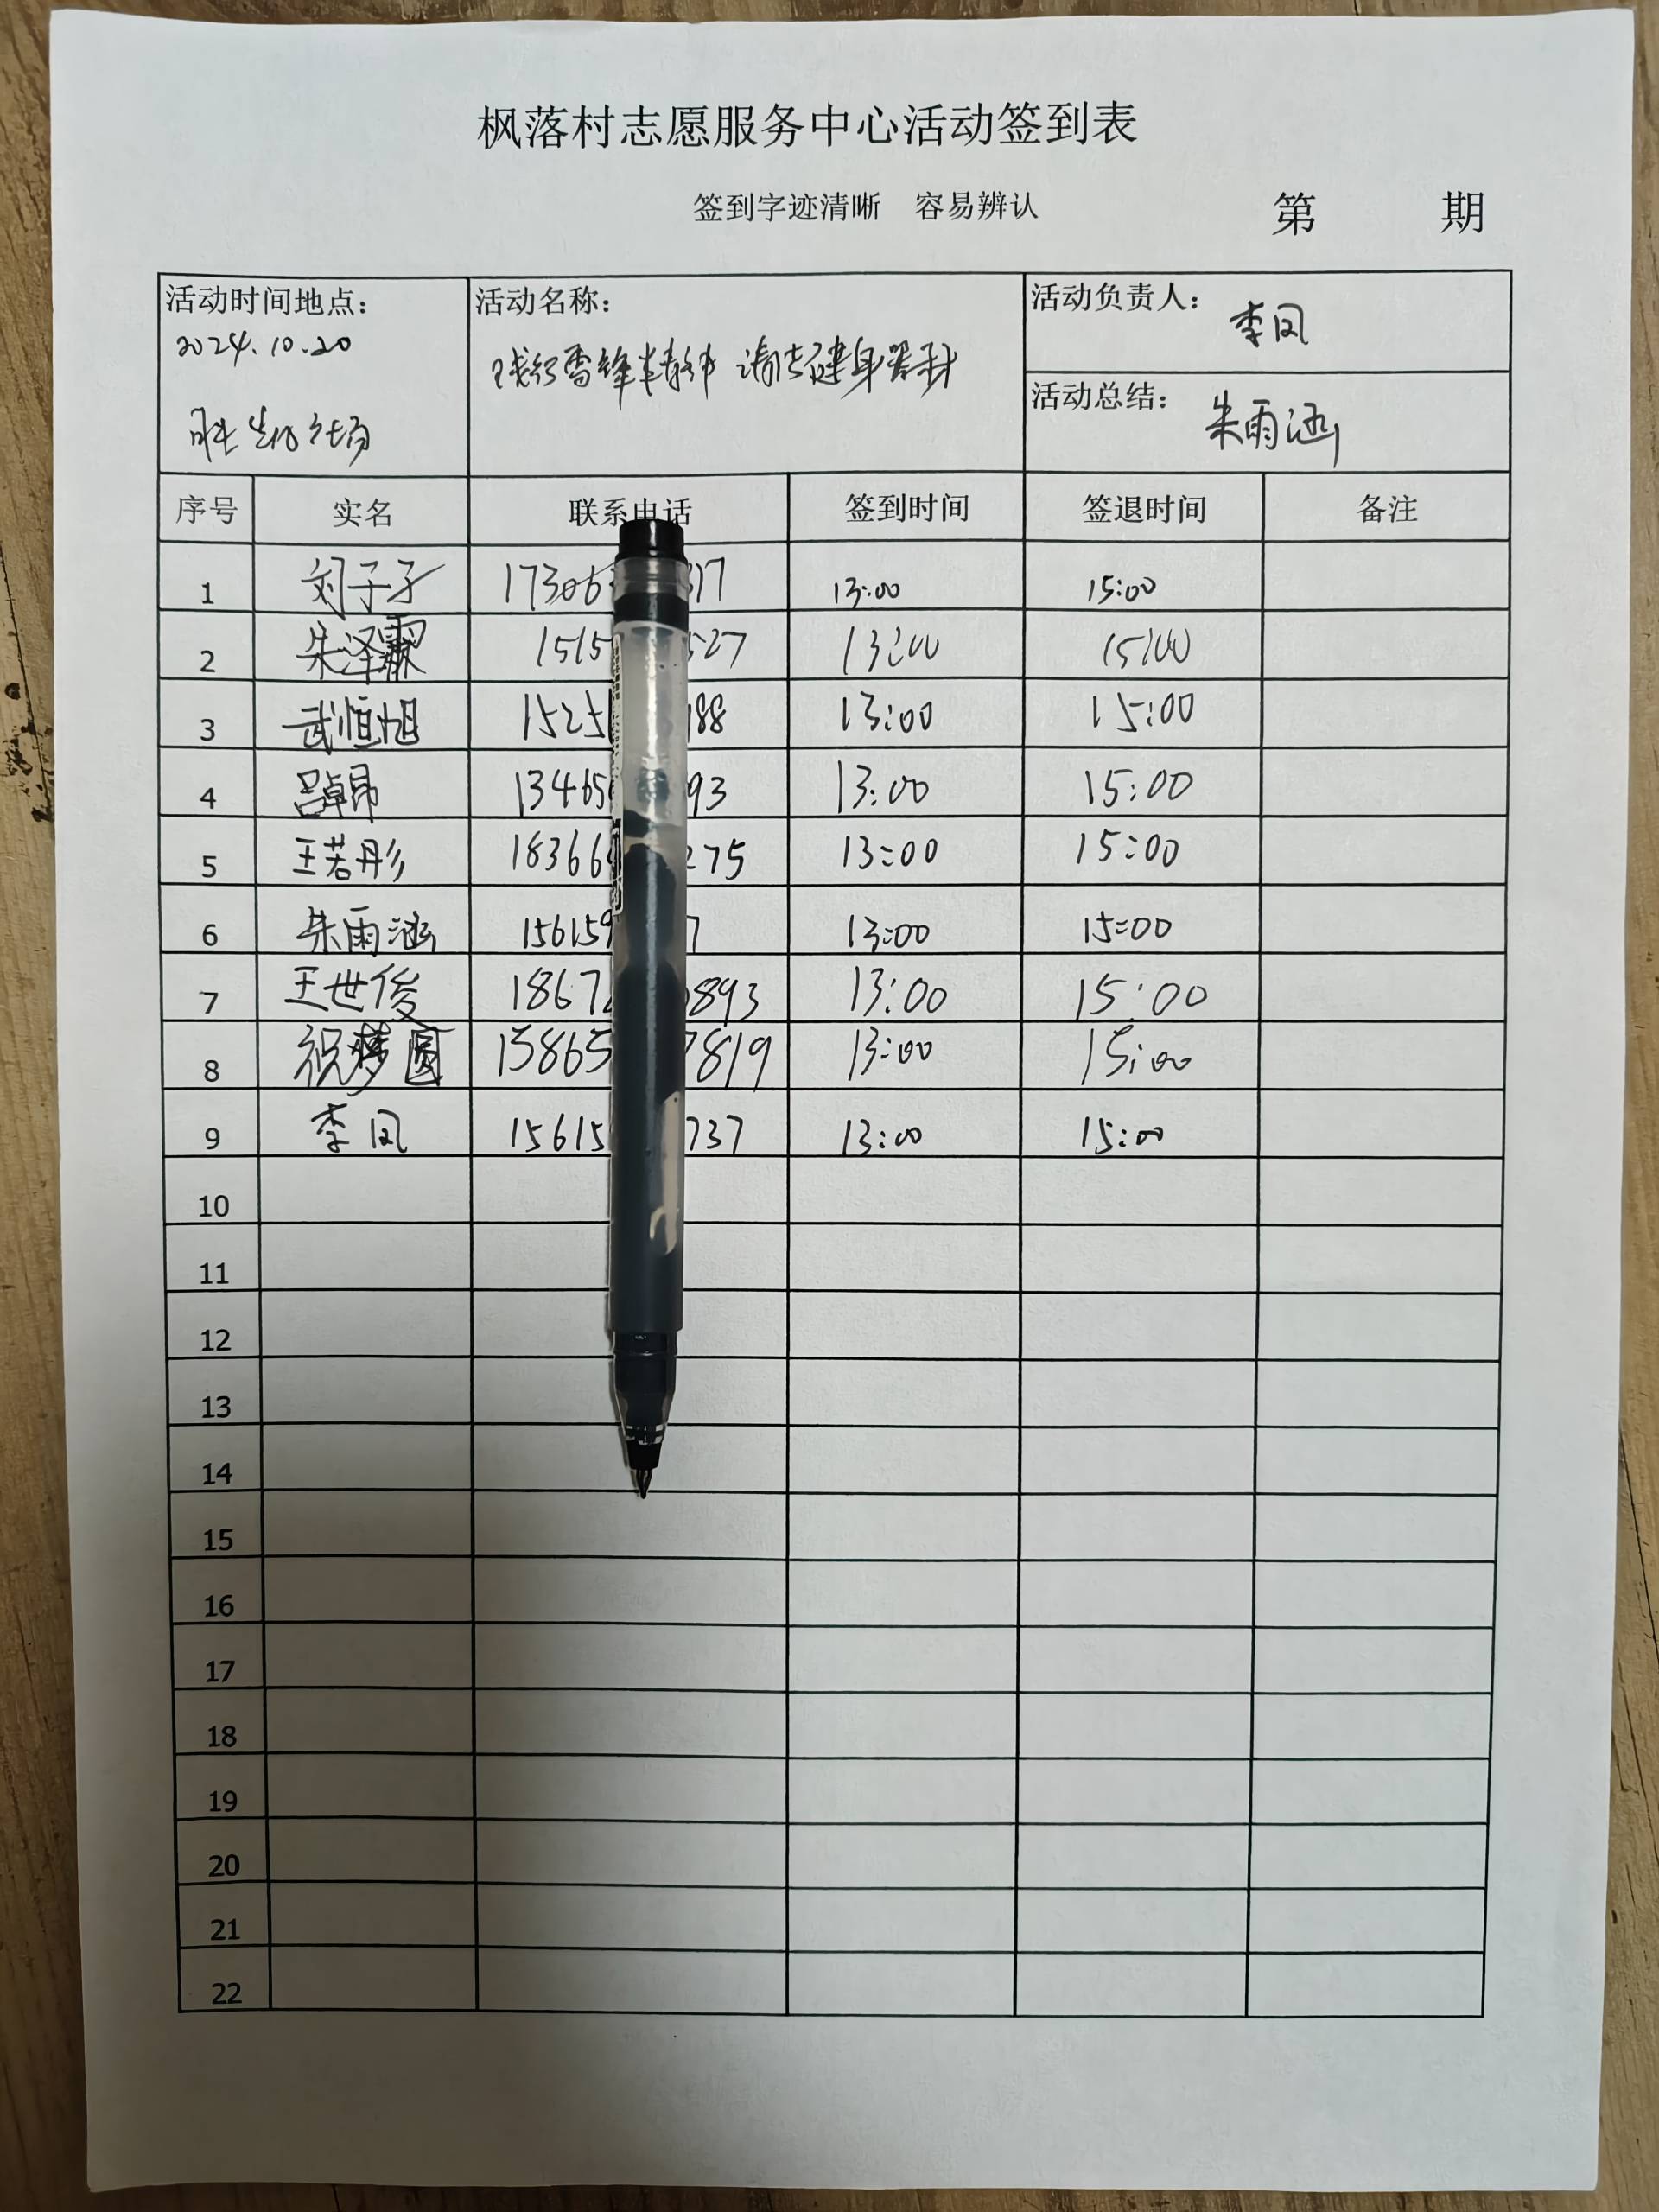 枫落村志愿服务中心活动签到表
签到字迹清晰 容易辨认
第 期
活动时间地点：
2024.10.20
活动名称：
践行雷锋精神 清洁健身器材
活动负责人： 李凤
活动总结： 朱雨涵
序号 实名 联系电话 签到时间 签退时间 备注
1 刘子子 17306 317 13:00 15:00
2 朱泽霖 1515 527 13:00 15:00
3 武恒旭 1525 188 13:00 15:00
4 吕卓昂 13465 93 13:00 15:00
5 王若彤 18366 275 13:00 15:00
6 朱雨涵 156159 7 13:00 15:00
7 王世俊 1867 893 13:00 15:00
8 祝梦圆 15865 7819 13:00 15:00
9 李凤 15615 737 13:00 15:00
10
11
12
13
14
15
16
17
18
19
20
21
22